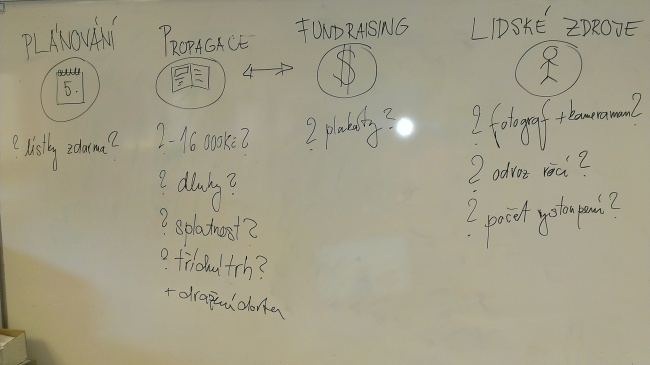 PLÁNOVÁNÍ
5.
? lístky zdarma?
PROPAGACE
?-16 000Kč?
? dluhy?
? splatnost?
? tříchutrh?
+ dražení dortu
FUNDRAISING
$
? plakáty?
LIDSKÉ ZDROJE
? fotograf + kameraman?
? odvoz věcí?
? počet vystoupení?